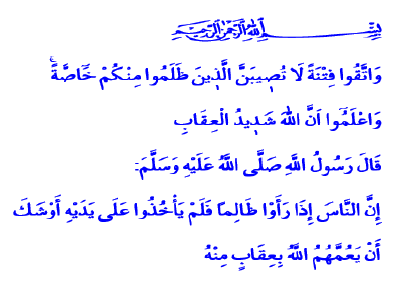 بِسْمِ اللهِ الرَّحْمٰنِ الرَّحِيمِ
وَاتَّقُوا فِتْنَةً لَا تُصِيبَنَّ الَّذِينَ ظَلَمُوا مِنْكُمْ خَاصَّةًۚ
وَاعْلَمُٓوا اَنَّ اللهَ شَدِيدُ الْعِقَابِ
قَالَ رَسُولُ اللَّهِ صَلَّى اللَّهُ عَلَيْهِ وَسَلَّمَ:
إِنَّ النَّاسَ إِذَا رَأَوْا ظَالِمًا فَلَمْ يَأْخُذُوا عَلَى يَدَيْهِ أَوْشَكَ
أَنْ يَعُمَّهُمُ اللَّهُ بِعِقَابٍ مِنْهُ